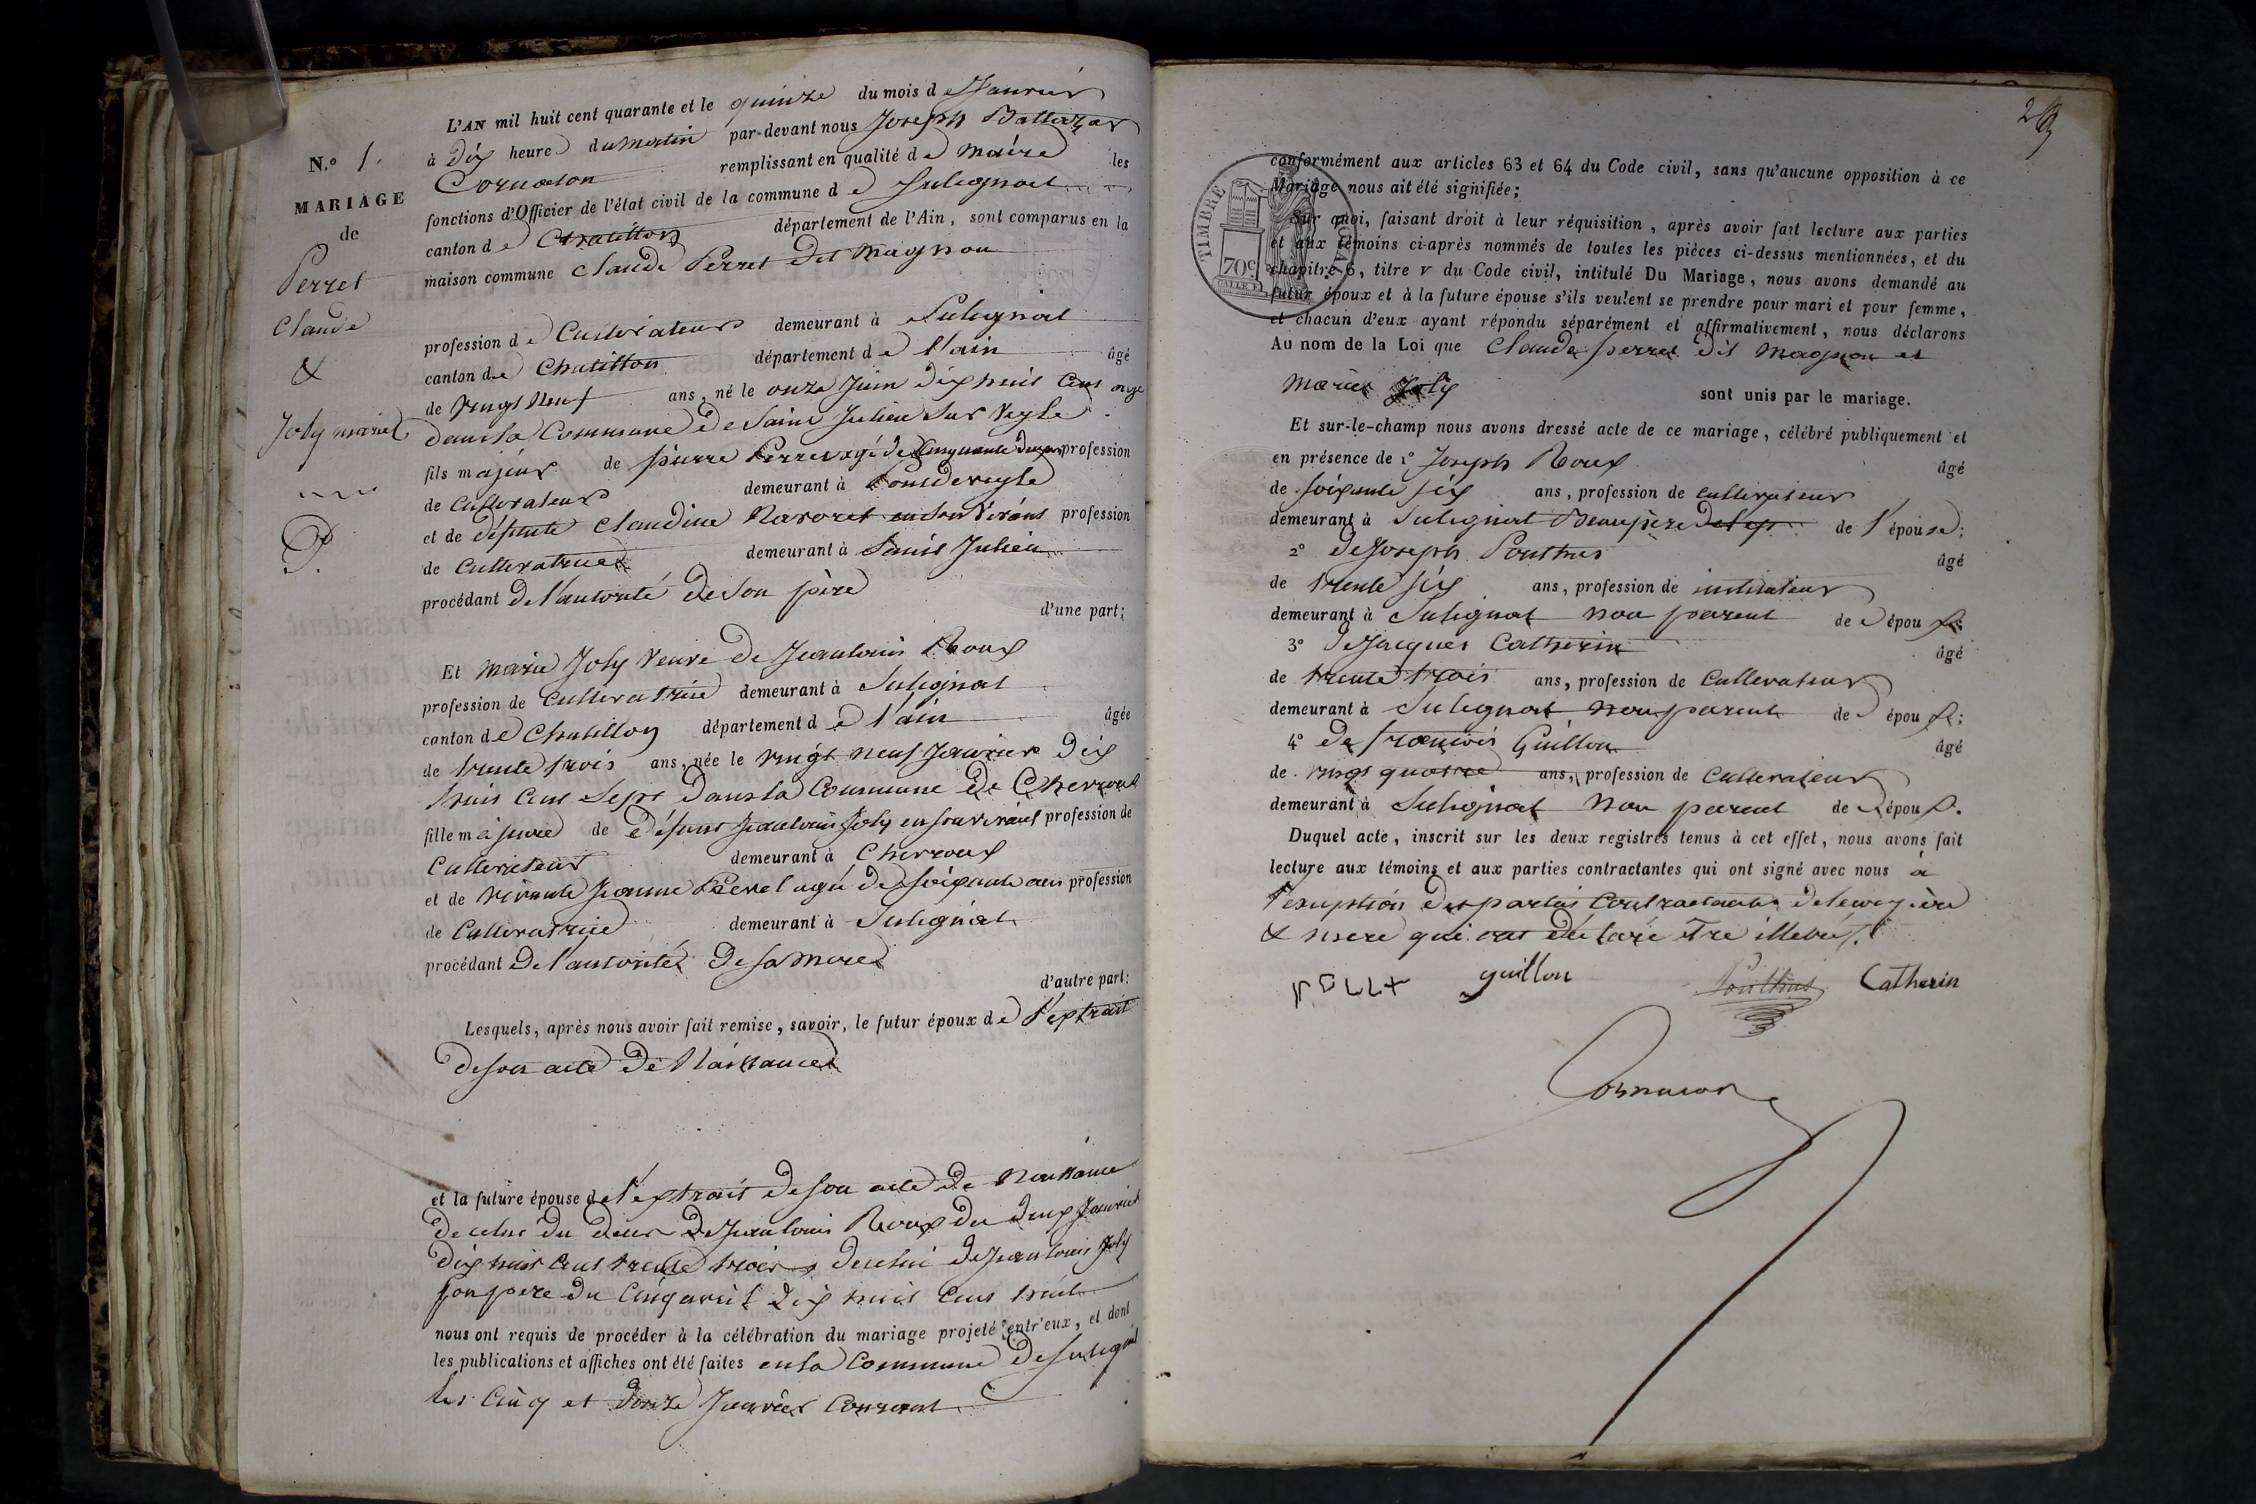 N.o 1.
MARIAGE
de
Perret
Claude
&
Joly marie
L'AN mil huit cent quarante et le quinze du mois de Janvier
à dix heures du matin par-devant nous Joseph Baltazar
Cornaton remplissant en qualité de maire les
fonctions d'Officier de l'état civil de la commune de Sulignat
canton de Chatillon département de l'Ain, sont comparus en la
maison commune Claude Perret dit Magnon
profession de Cultivateur demeurant à Sulignat
canton de Chatillon département de l'ain âgé
de vingt neuf ans, né le onze Juin dix huit cent onze
dans la Commune de Saint Julien Sur Veyle
fils majeur de pierre Perret agé de Cinquante profession
de Cultivateur demeurant à Pondeveyle
et de défunte Claudine en son vivant profession
de Cultivatrice demeurant à Saint Julien
procédant de l'autorité de son père
d'une part;
Et marie Joly veuve de Jeanlouis Roux
profession de Cultivatrice demeurant à Sulignat
canton de Chatillon département de l'ain âgée
de trente trois ans, née le vingt neuf Janvier dix
huit cent sept dans la Commune de Cherroux
fille majeure de défunt Jeanlouis Joly en son vivant profession de
Cultivateur demeurant à Cherroux
et de vivante Jeanne agée de soixante ans profession
de Cultivatrice demeurant à Sulignat
procédant de l'autorité de sa mere
d'autre part:
Lesquels, après nous avoir fait remise, savoir, le futur époux de l'extrait
de son acte de Naissance
et la future épouse de l'extrait de son acte de Naissance
de celui du deces de Jeanlouis Roux du deux Janvier
dix huit cent trente trois, de celui de Jeanlouis Joly
son pere du Cinq avril dix huit cent huit
nous ont requis de procéder à la célébration du mariage projeté entr'eux, et dont
les publications et affiches ont été faites en la Commune de Sulignat
les Cinq et douze Janvier Courant
conformément aux articles 63 et 64 du Code civil, sans qu'aucune opposition à ce
Mariage nous ait été signifiée;
Sur quoi, faisant droit à leur réquisition, après avoir fait lecture aux parties
et aux témoins ci-après nommés de toutes les pièces ci-dessus mentionnées, et du
chapitre 6, titre v du Code civil, intitulé Du Mariage, nous avons demandé au
futur époux et à la future épouse s'ils veulent se prendre pour mari et pour femme,
et chacun d'eux ayant répondu séparément et affirmativement, nous déclarons
Au nom de la Loi que Claude perret dit Magnon et
Marie Joly sont unis par le mariage.
Et sur-le-champ nous avons dressé acte de ce mariage, célébré publiquement et
en présence de 1° Joseph Roux âgé
de soixante six ans, profession de Cultivateur
demeurant à Sulignat Beaupère de l'épouse;
2° de Joseph Pouthus âgé
de trente six ans, profession de instituteur
demeurant à Sulignat non parent de épou x;
3° de Jacques Catherin âgé
de trente trois ans, profession de Cultivateur
demeurant à Sulignat non parent de épou x;
4° de françois Guillon âgé
de vingt quatre ans, profession de Cultivateur
demeurant à Sulignat Non parent de épou x.
Duquel acte, inscrit sur les deux registres tenus à cet effet, nous avons fait
lecture aux témoins et aux parties contractantes qui ont signé avec nous à
l'exception des parties Contractantes de leur père
& mere qui ont déclaré être illetrés.
roux guillon Pouthus Catherin
Cornaton
TIMBRE ROYAL
70c